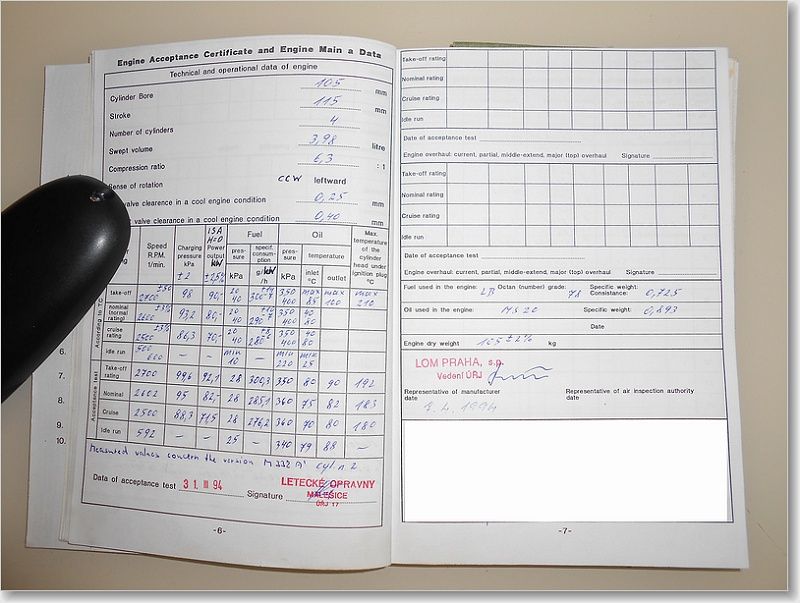 Engine Acceptance Certificate and Engine Main a Data
Technical and operational data of engine
Cylinder Bore 105 mm
Stroke 115 mm
Number of cylinders 4
Swept volume 3,98 litre
Compression ratio 6,3 : 1
Sense of rotation CCW leftward
valve clearence in a cool engine condition 0,25 mm
valve clearance in a cool engine condition 0,40 mm
Speed R.P.M. 1/min.
Charging pressure kPa ±2
ISA H=0 Power output kW
Fuel
pressure kPa
specif. consumption
/h
Oil
pressure kPa
temperature
inlet °C
outlet
Max. temperature of the cylinder head under ignition plug °C
According to TC
take-off 98 90,- 20 40 350 400 max 85 max 100 max 210
nominal (normal rating) 93,2 80,- 20 40 350 400 40 80
cruise rating 2500 86,3 70,- 20 40 350 400 40 80
idle run 500 600 – – min 10 – min 220 min 25
Acceptance test
6.
7. Take-off rating 2700 99,6 92,1 28 300,3 350 80 90 192
8. Nominal 2602 95 82,- 28 285,1 360 75 82 183
9. Cruise 2500 88,3 71,5 28 276,2 360 70 80 180
10. Idle run 592 – – 25 – 340 79 88 –
Measured values concern the version M 332 cyl. n 2
Data of acceptance test 31. III 94
Signature
LETECKÉ OPRAVNY
MALEŠICE
ÚŘJ 17
-6-
Take-off rating
Nominal rating
Cruise rating
Idle run
Date of acceptance test
Engine overhaul: current, partial, middle-extend, major (top) overhaul Signature
Take-off rating
Nominal rating
Cruise rating
Idle run
Date of acceptance test
Engine overhaul: current, partial, middle-extend, major (top) overhaul Signature
Fuel used in the engine: LB Octan (number) grade: 78 Specific weight: Consistance: 0,725
Oil used in the engine: MS 20 Specific weight: 0,893
Date
Engine dry weight 105 ±2% kg
LOM PRAHA, s.p.
Vedení ÚŘJ
Representative of manufacturer
date
Representative of air inspection authority
date
1994
-7-